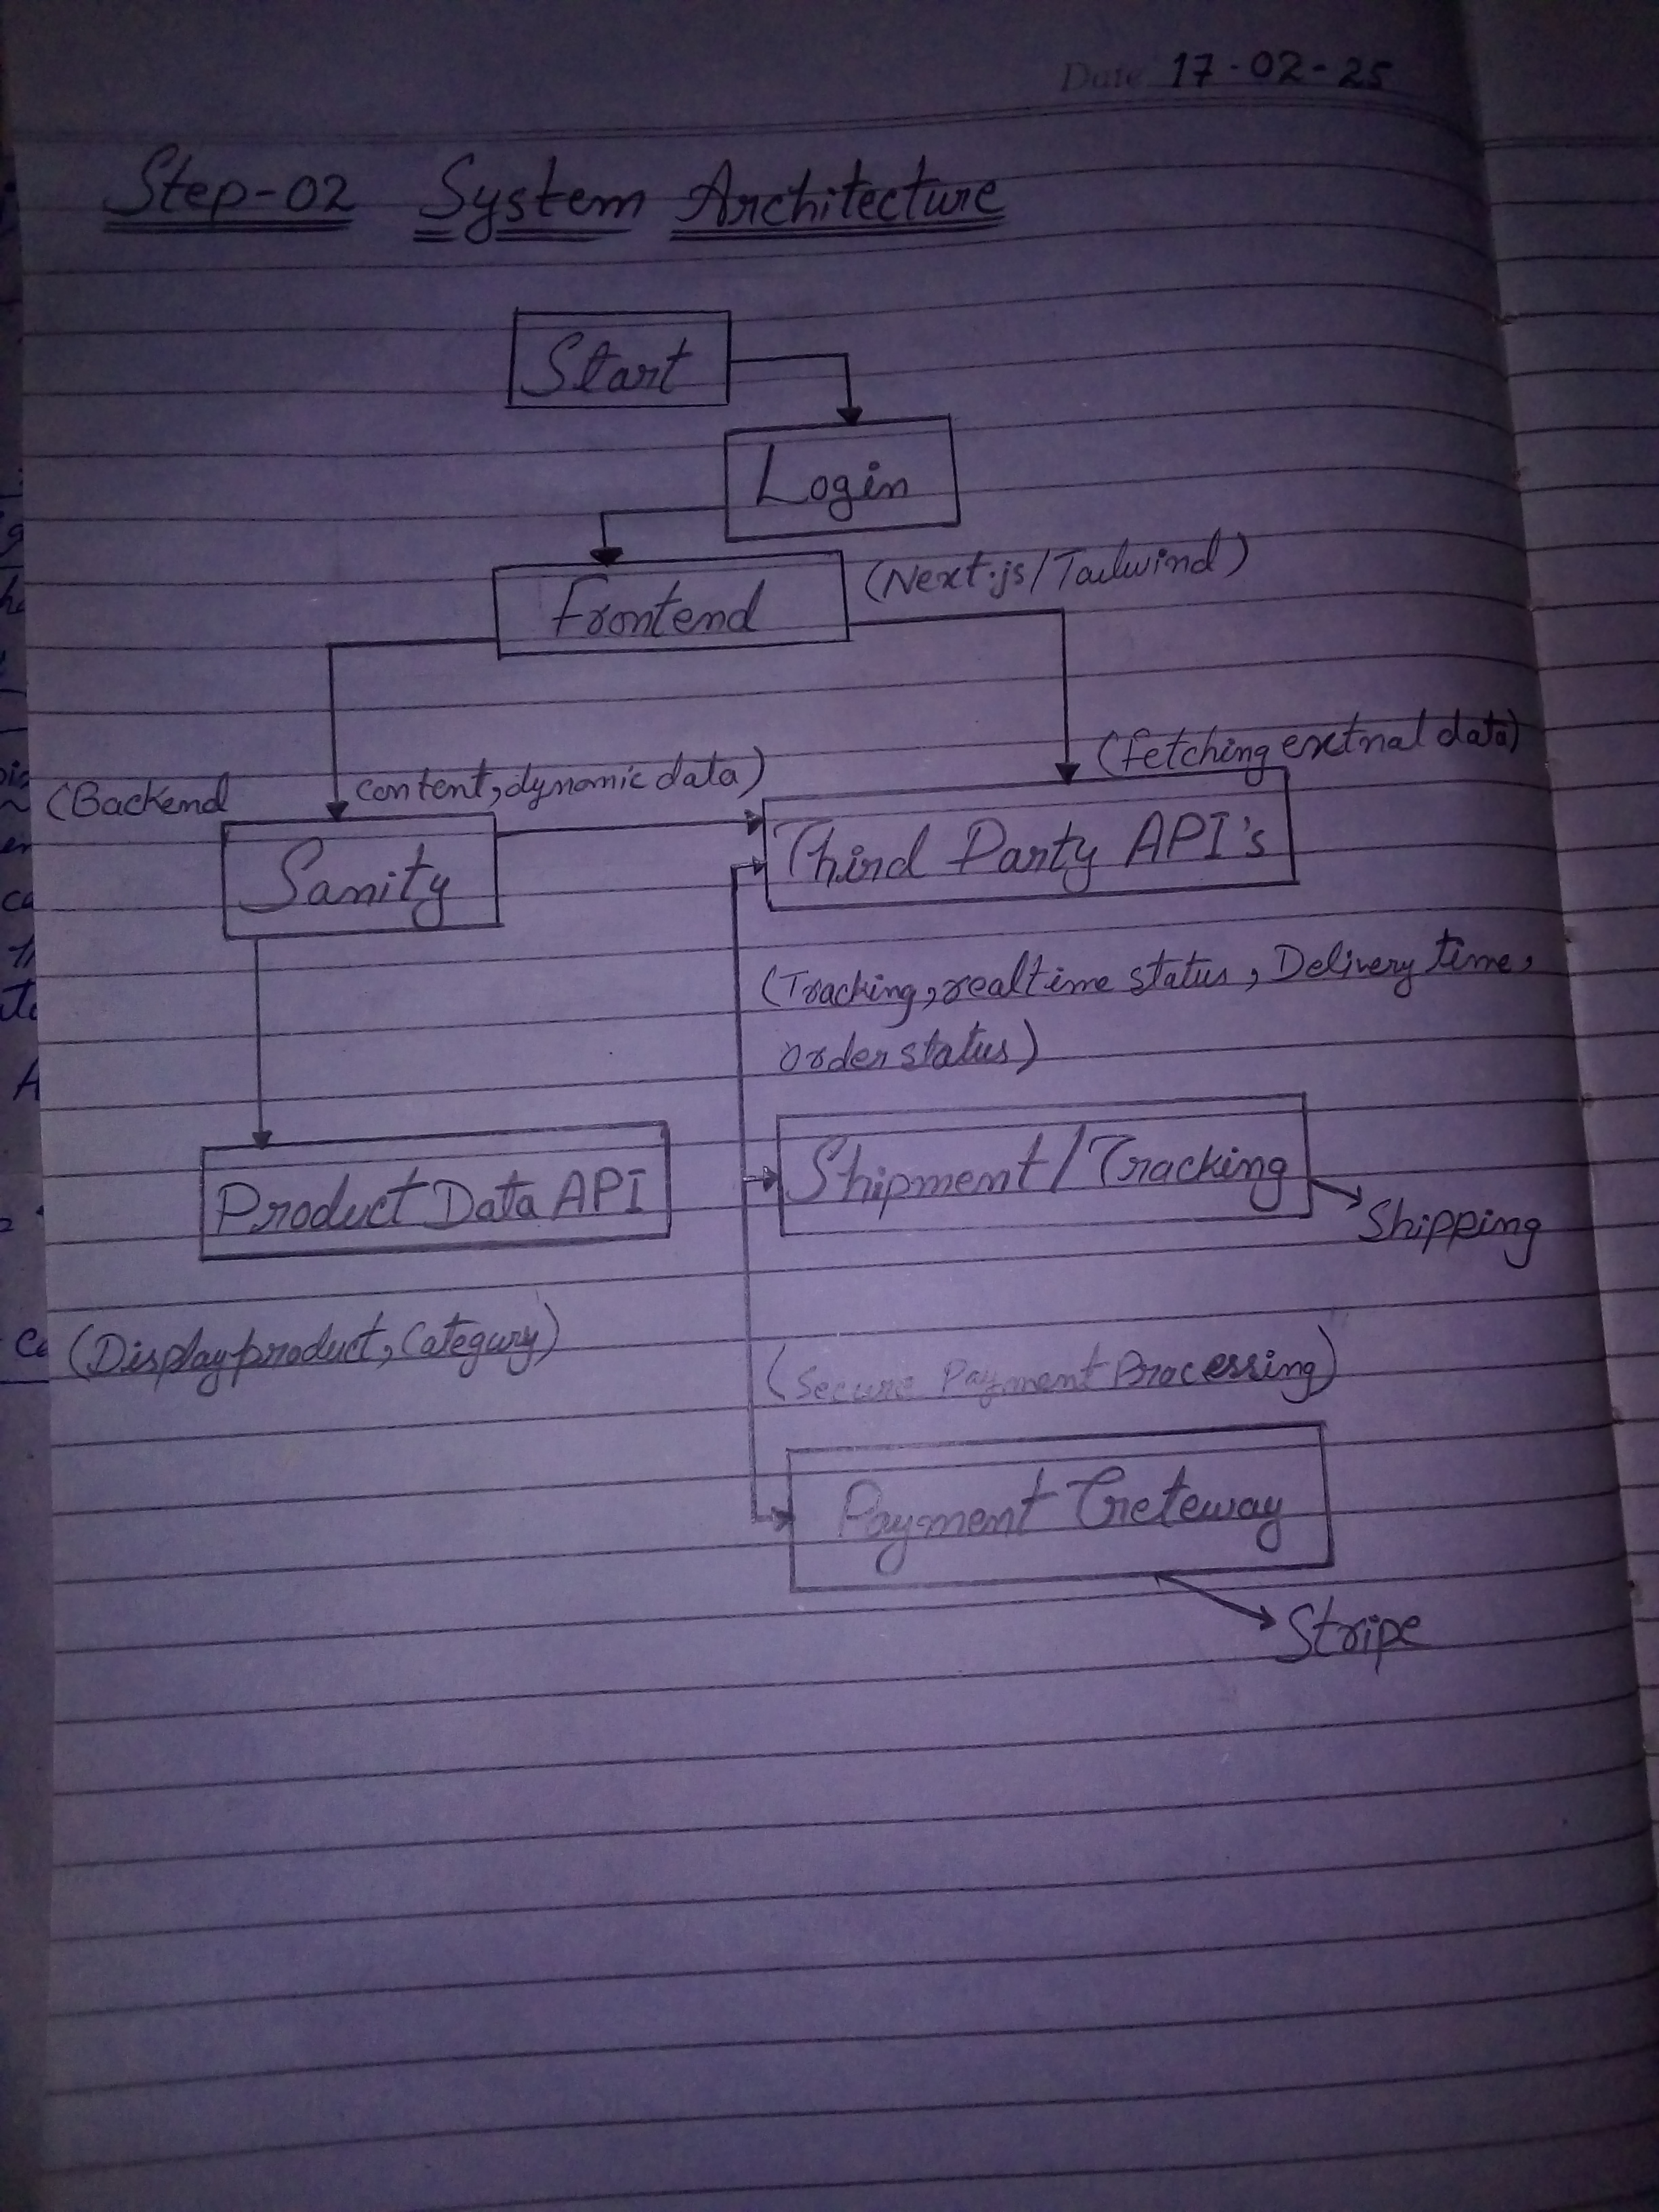 Date 17-02-25
Step-02 System Architecture
Start
Login
Frontend
(Next.js/Tailwind)
(fetching extnal data)
(Backend content, dynamic data)
Sanity
Third Party API's
(Tracking, realtime status, Delivery time,
order status)
Product Data API
Shipment/Tracking
Shipping
(Display product, Category)
(Secure Payment Processing)
Payment Geteway
Stripe